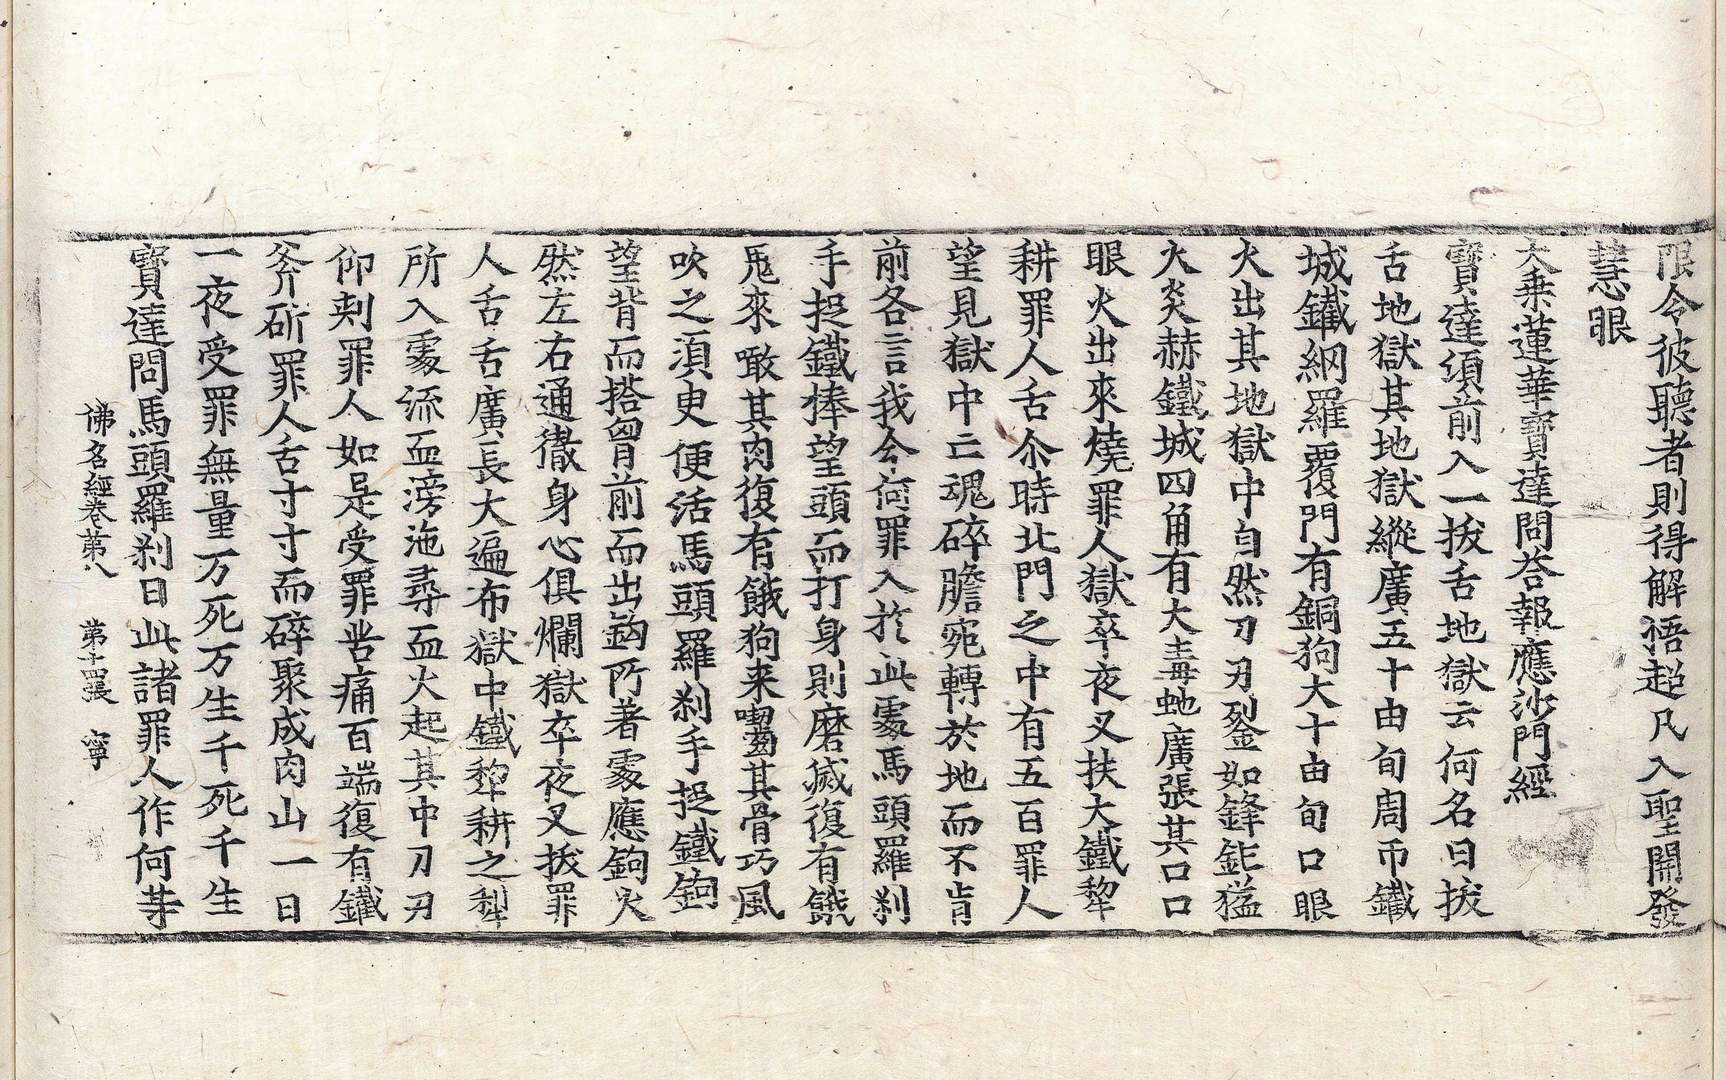 限令彼聽者則得解悟超凡入聖開發
慧眼
大乗蓮華寶達問荅報應沙門經
寶達須前入一拔舌地獄云何名曰拔
舌地獄其地獄縱廣五十由旬周帀鐵
城鐵網羅覆門有銅狗大十由旬口眼
火出其地獄中自然刀刃㓨如鋒鉅猛
火炎赫鐵城四角有大毒虵廣張其口口
眼火出來燒罪人獄卒夜叉扶大鐵犂
耕罪人舌尒時北門之中有五百罪人
望見獄中亡魂碎膽宛轉於地而不肯
前各言我今何罪入於此處馬頭羅刹
手捉鐵棒望頭而打身則磨滅復有餓
鬼來噉其肉復有餓狗来喫齧其骨巧風
吹之湏臾便活馬頭羅刹手捉鐵鉤
望背而搭胷前而出鉤所著處應鉤火
然左右通徹身心俱爛獄卒夜叉拔罪
人舌舌廣長大遍布獄中鐵犂耕之犂
所入處流血滂沲尋血火起其中刀刃
仰刾罪人如是受罪苦痛百端復有鐵
斧斫罪人舌寸寸而碎聚成肉山一日
一夜受罪無量万死万生千死千生
寶達問馬頭羅刹曰此諸罪人作何等
佛名經卷第八 第十四張 寧